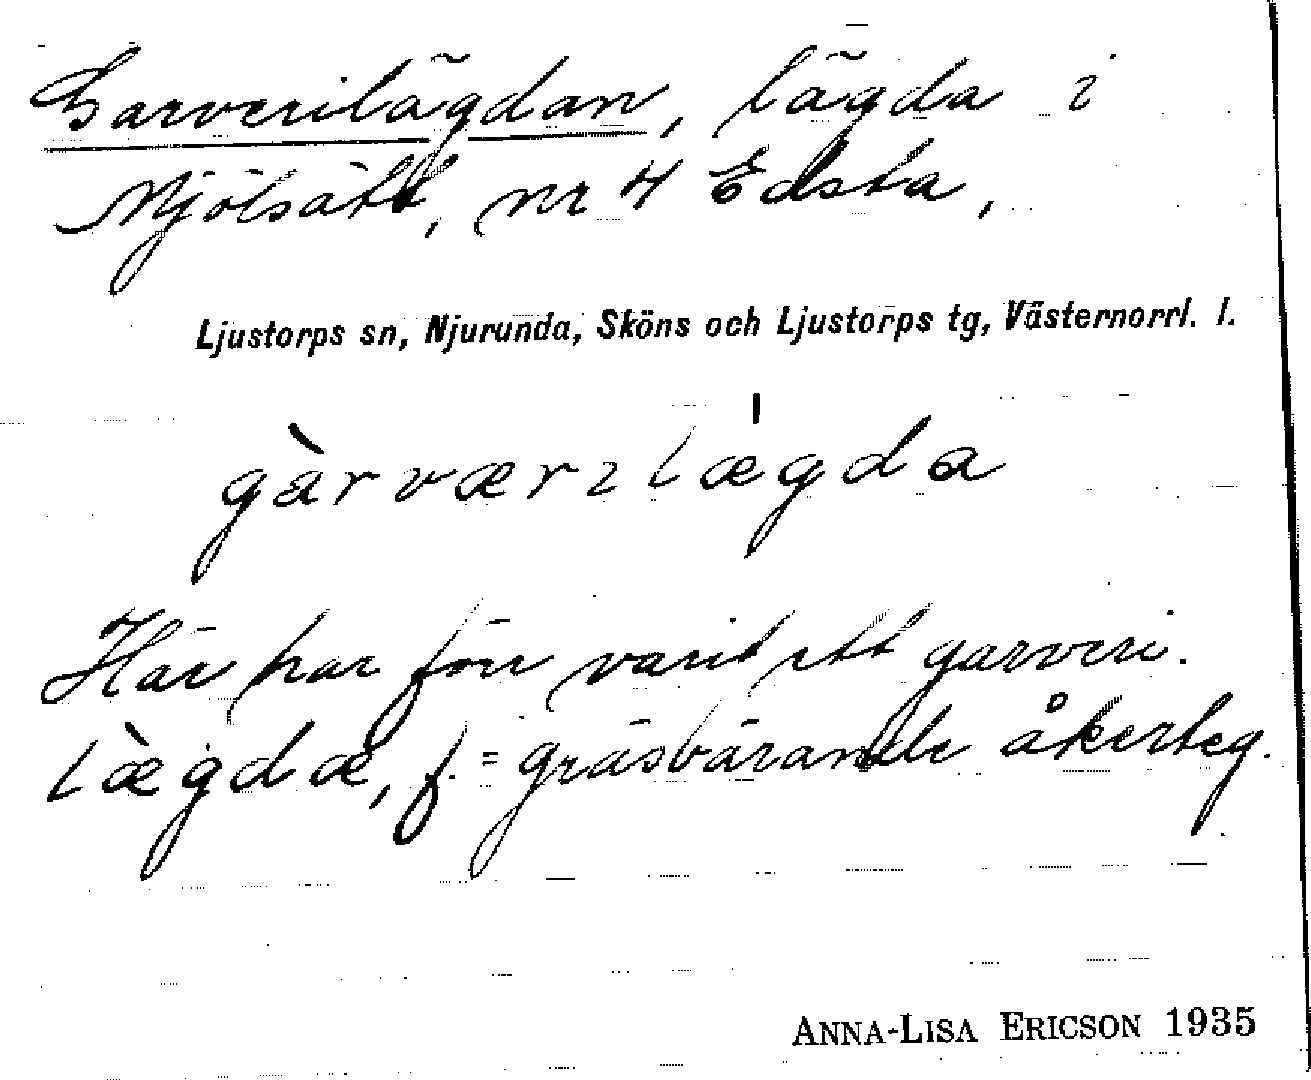 Garverilägdan, lägda i
Mjölsått, nr 4 Edsta,
Ljustorps sn, Njurunda, Sköns och Ljustorps tg, Västernorrl. l.
gàrværılǽgda
Här har förr varit ett garveri.
læ̀gda, f. = gräsbärande åkerteg.
ANNA-LISA ERICSON 1935